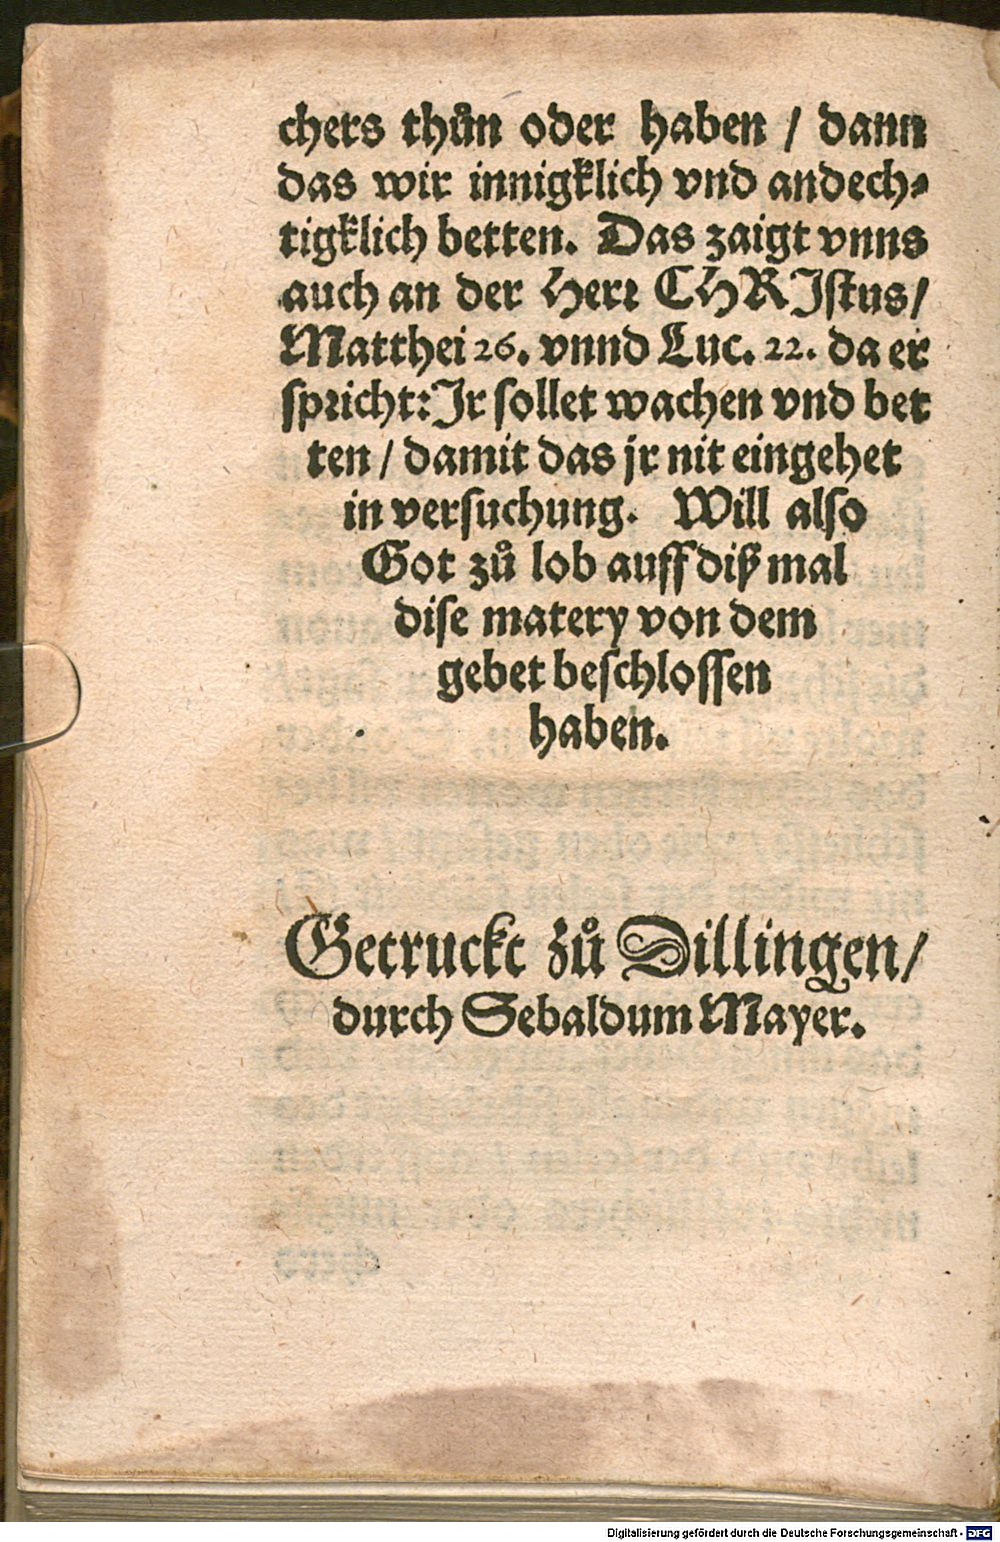 chers thůn oder haben / dann
das wir innigklich vnd andech⸗
tigklich betten. Das zaigt vnns
auch an der Herr CHRIſtus/
Matthei 26. vnnd Luc. 22. da er
ſpricht: Jr ſollet wachen vnd bet
ten / damit das jr nit eingehet
in verſuchung. Will alſo
Got zů lob auff diß mal
diſe matery von dem
gebet beſchloſſen
haben.
Getruckt zů Dillingen/
durch Sebaldum Mayer.
Digitalisierung gefördert durch die Deutsche Forschungsgemeinschaft - DFG